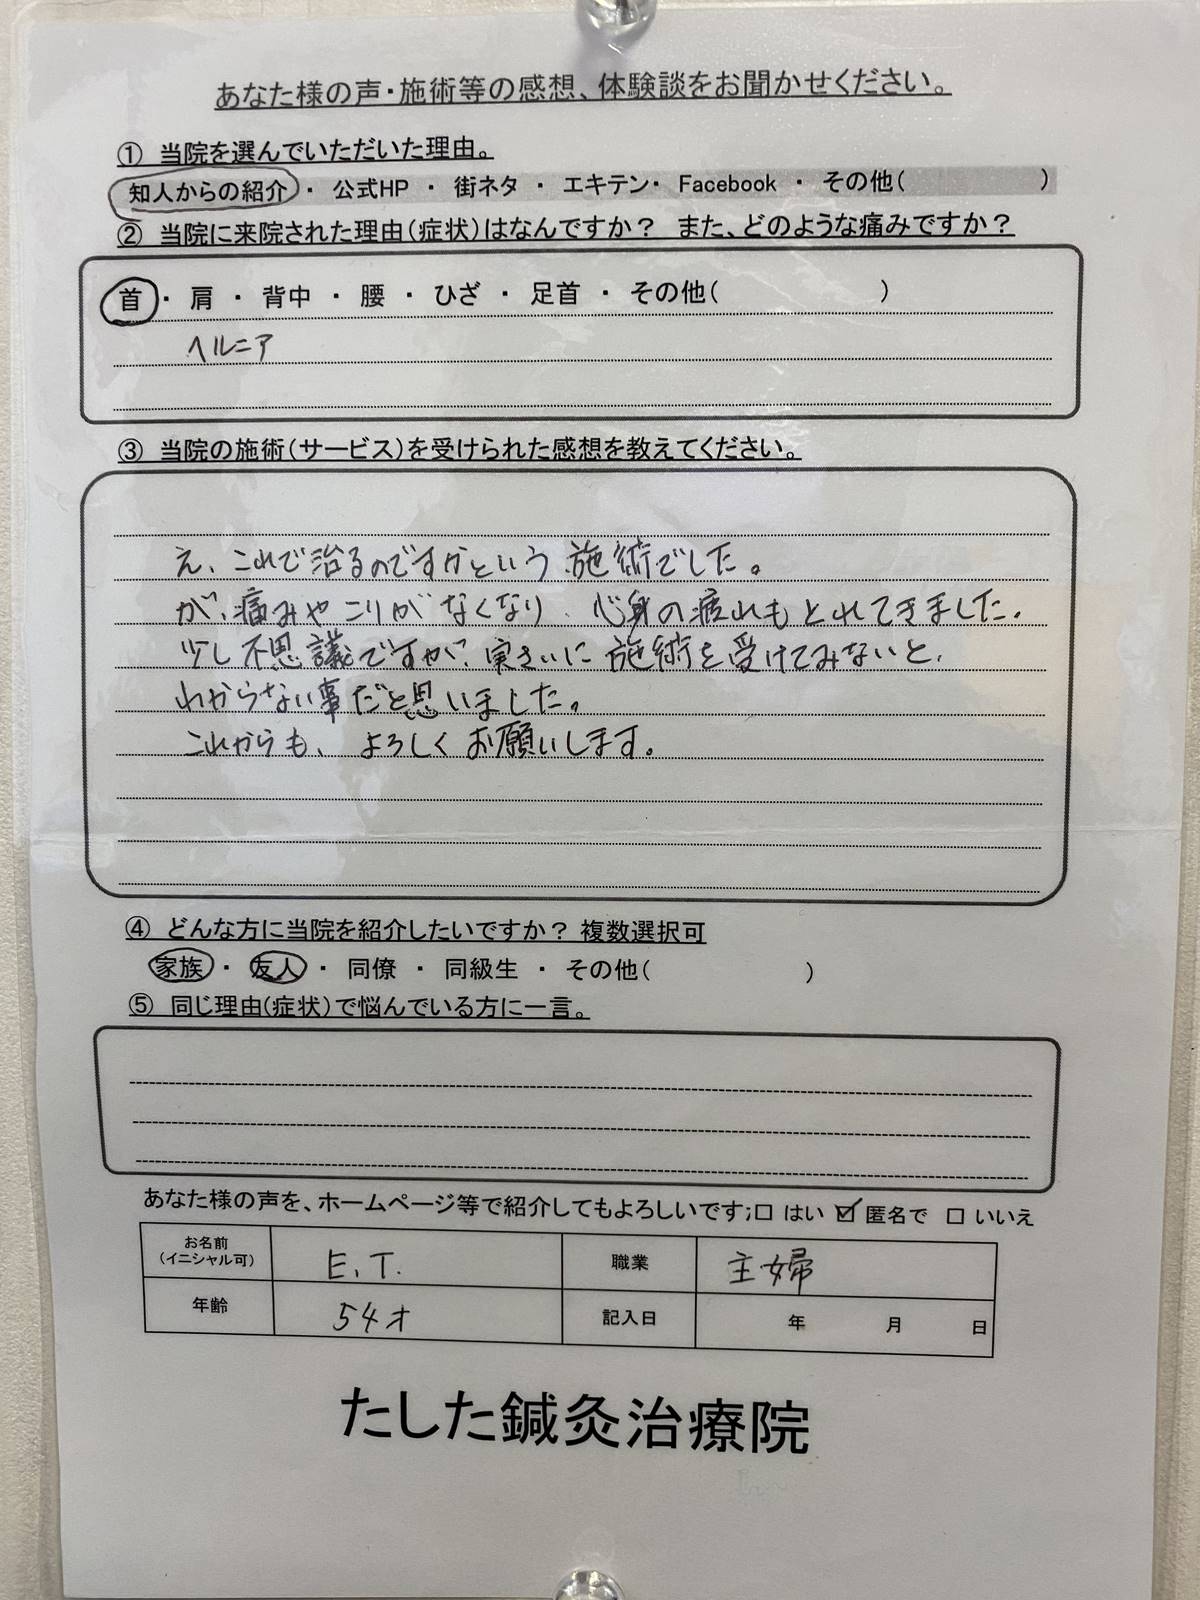 あなた様の声・施術等の感想、体験談をお聞かせください。
① 当院を選んでいただいた理由。
知人からの紹介 ・ 公式HP ・ 街ネタ ・ エキテン・ Facebook ・ その他( )
② 当院に来院された理由(症状)はなんですか? また、どのような痛みですか?
首 ・ 肩 ・ 背中 ・ 腰 ・ ひざ ・ 足首 ・ その他( )
ヘルニア
③ 当院の施術(サービス)を受けられた感想を教えてください。
え、これで治るのですかという施術でした。
が、痛みやこりがなくなり、心身の疲れもとれてきました。
少し不思議ですが、実さいに施術を受けてみないと、
わからない事だと思いました。
これからも、よろしくお願いします。
④ どんな方に当院を紹介したいですか? 複数選択可
家族 ・ 友人 ・ 同僚 ・ 同級生 ・ その他( )
⑤ 同じ理由(症状)で悩んでいる方に一言。
あなた様の声を、ホームページ等で紹介してもよろしいです;□ はい ☑ 匿名で □ いいえ
お名前(イニシャル可) E.T. 職業 主婦
年齢 54才 記入日 年 月 日
たした鍼灸治療院